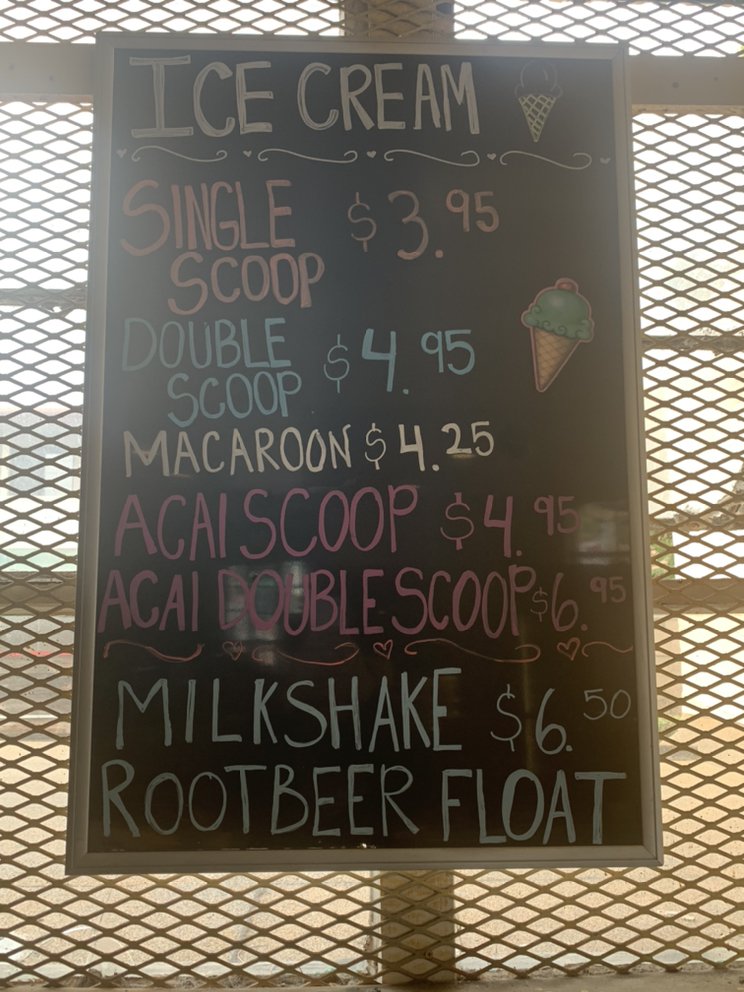 ICE CREAM
SINGLE $3.95
SCOOP
DOUBLE $4.95
SCOOP
MACAROON $4.25
ACAI SCOOP $4.95
ACAI DOUBLE SCOOP $6.95
MILKSHAKE $6.50
ROOTBEER FLOAT